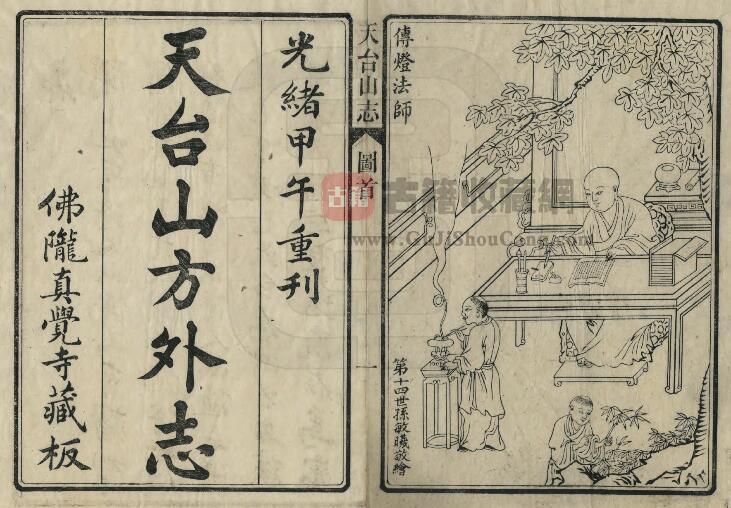 傳燈法師
第十四世孫敏曦敬繪
天台山志
圖首
一
光緒甲午重刊
天台山方外志
佛隴真覺寺藏板
古籍
古籍收藏網
www.GuJiShouCang.com